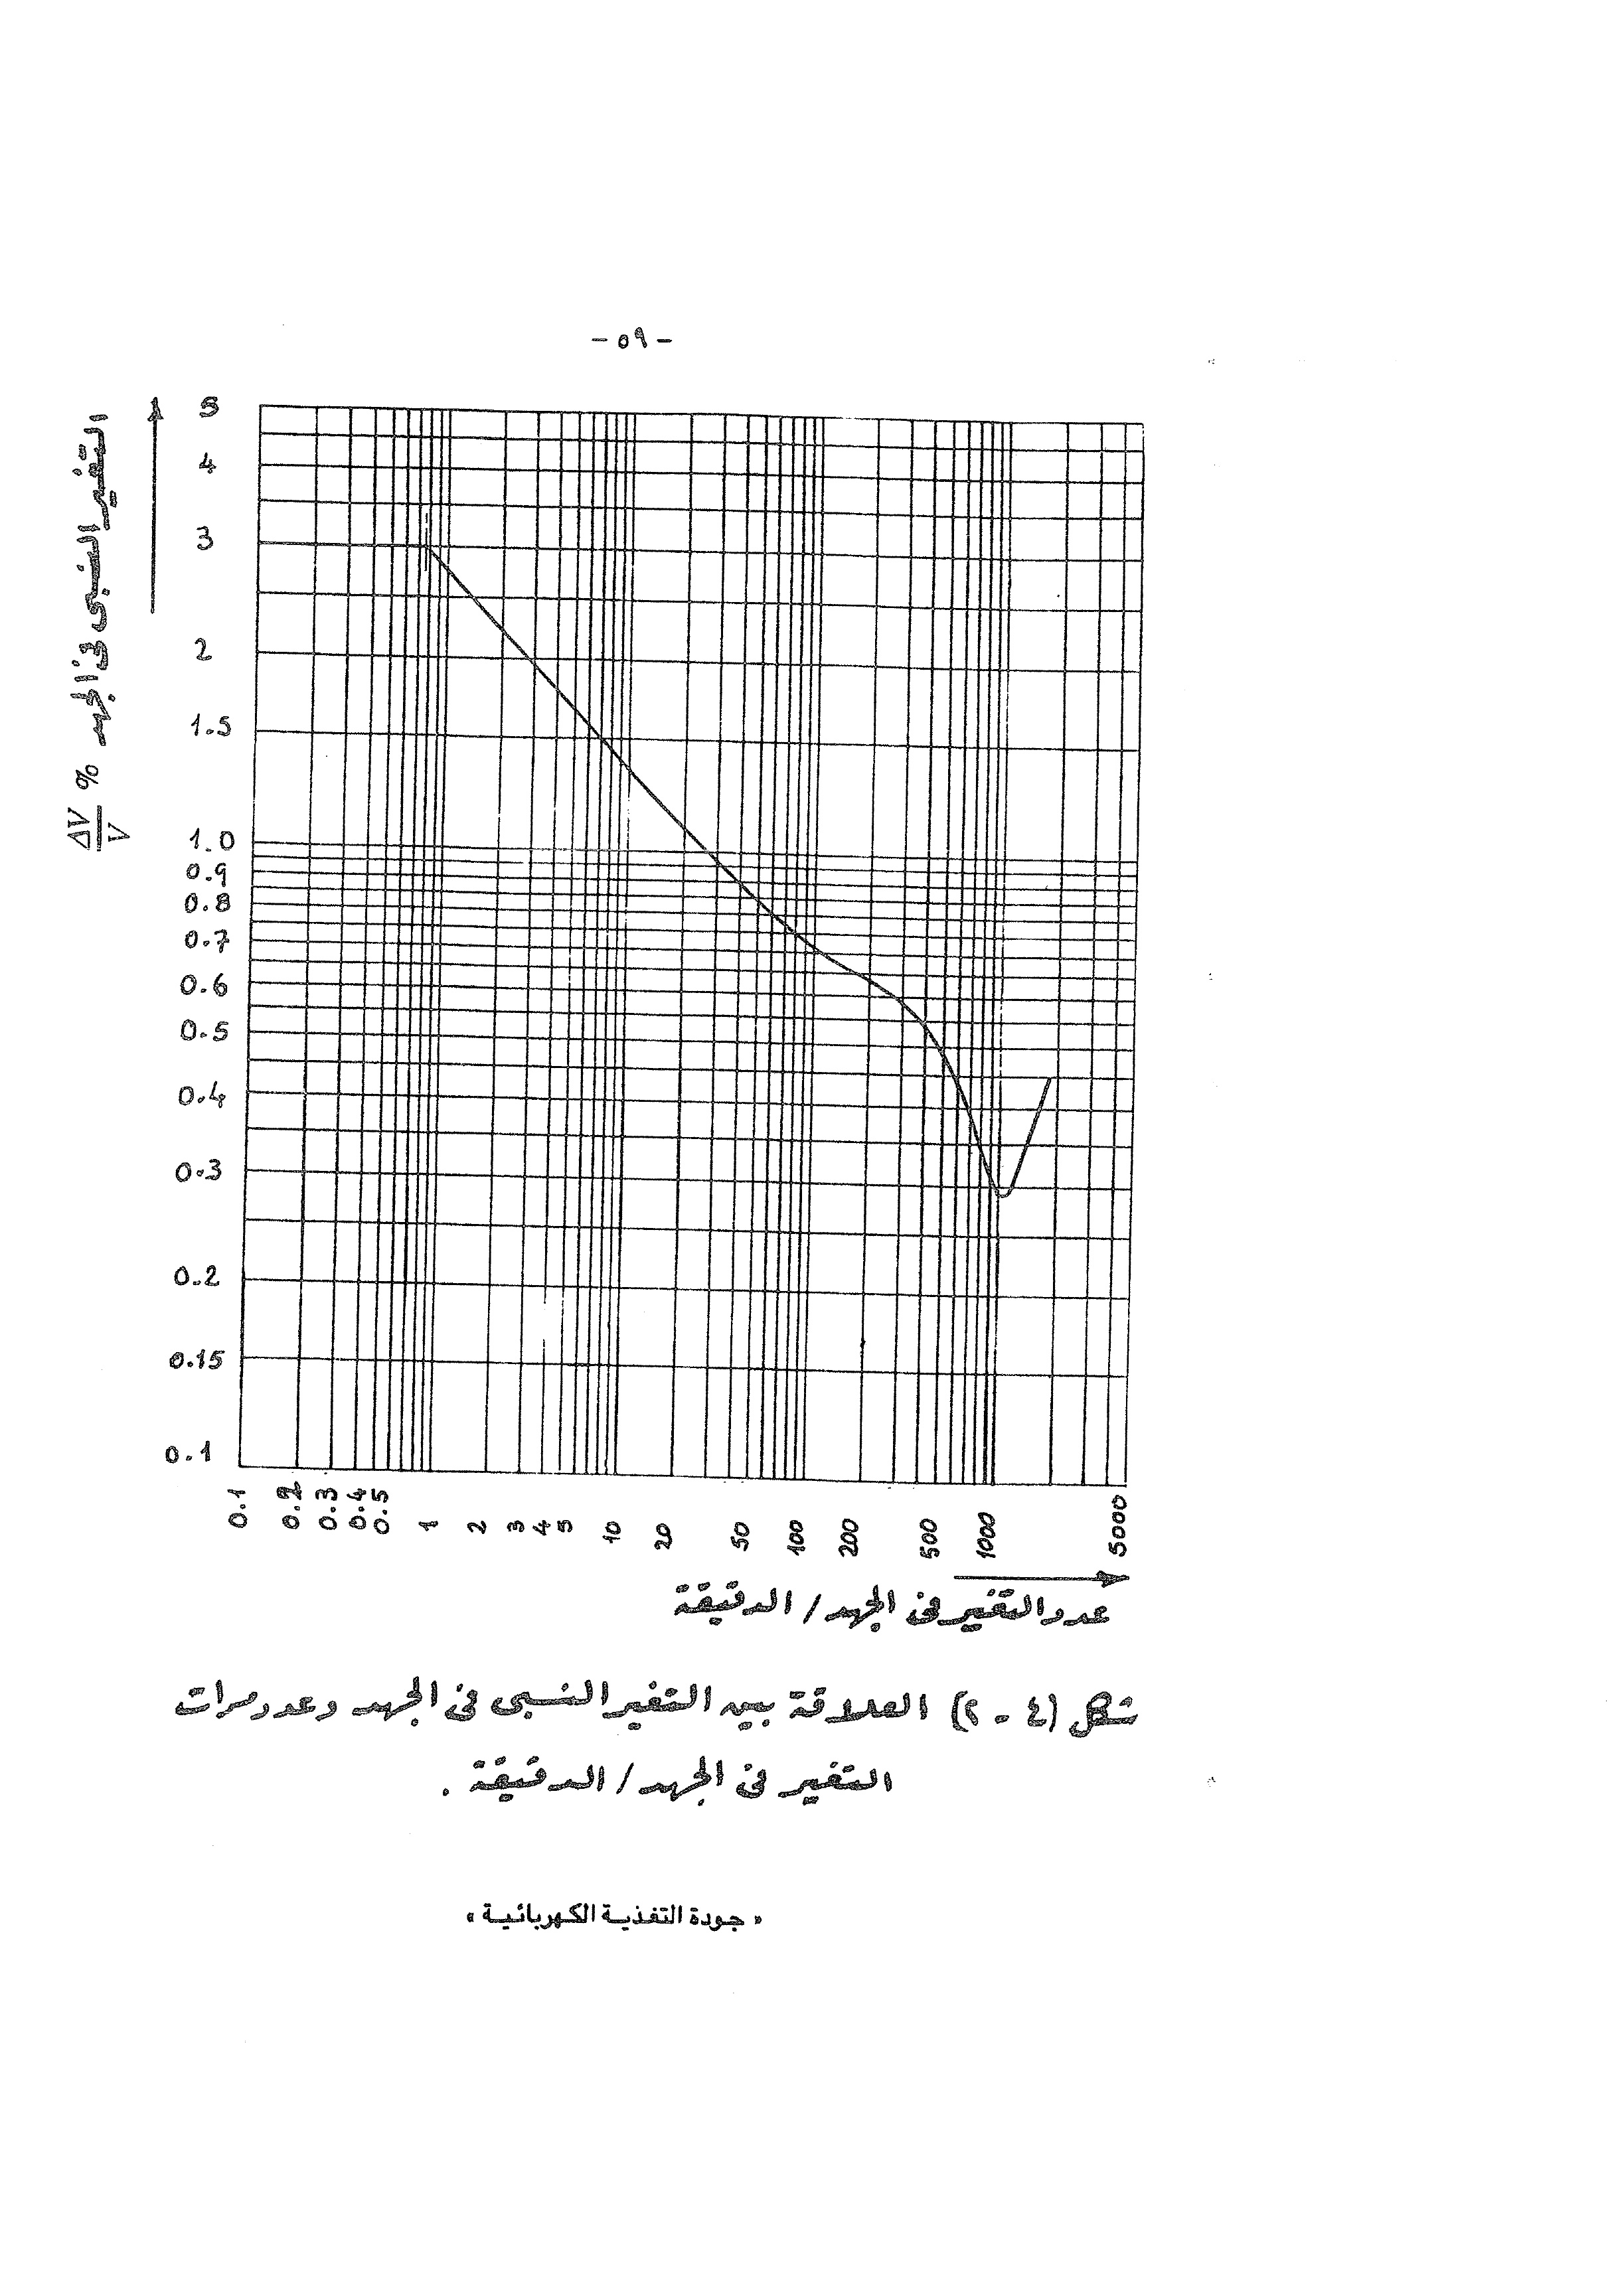 - ٥٩ -
التغير النسبى فى الجهد % ΔV/V
5
4
3
2
1.5
1.0
0.9
0.8
0.7
0.6
0.5
0.4
0.3
0.2
0.15
0.1
0.1 0.2 0.3 0.4 0.5 1 2 3 4 5 10 20 50 100 200 500 1000 5000
عدد التغير فى الجهد / الدقيقة
شكل (٤ - ٢) العلاقة بين التغير النسبى فى الجهد وعدد مرات
التغير فى الجهد / الدقيقة .
« جودة التغذية الكهربائية »